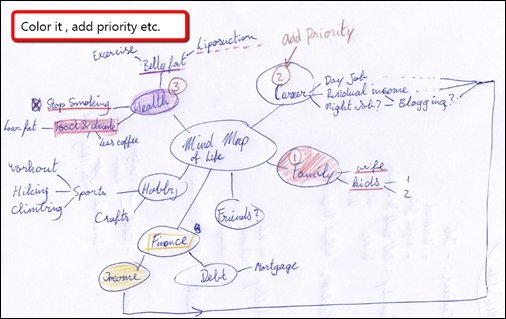 Color it , add priority etc.
add Priority
Exercise
Liposuction
Belly fat
2
Career
Day Job
Residual income
Night Job? Blogging?
3
Health
Stop Smoking
Food & drink
Low fat
Less coffee
Mind Map
of Life
1
Family
wife
kids
1
2
Workout
Hiking
Climbing
Sports
Hobby
Crafts
Friends?
Finance
Income
Debt
Mortgage